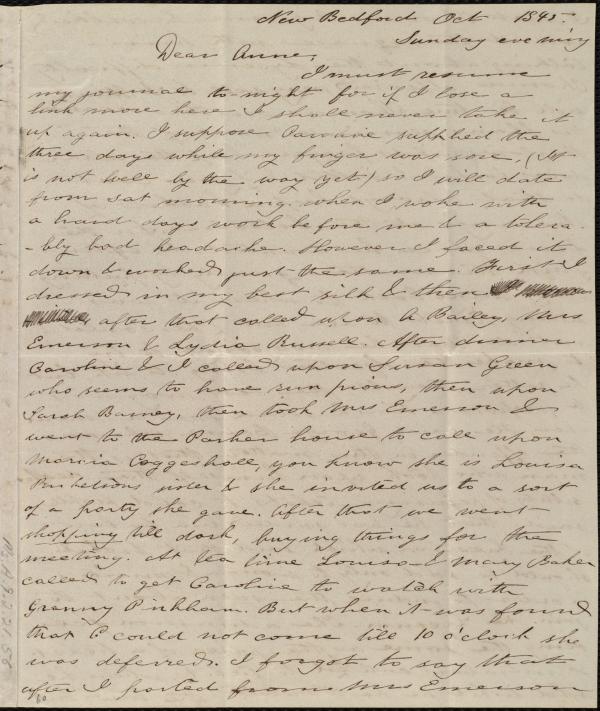 New Bedford Oct 1845.
Sunday evening
Dear Anne,
I must resume
my journal to-night for if I lose a
link more here I shall never take it
up again. I suppose Caroline supplied the
three days while my finger was sore, (It
is not well by the way yet) so I will date
from Sat morning. when I woke with
a hard days work before me & a tolera-
-bly bad headache. However I faced it
down & worked just the same. First I
dressed in my best silk & then
after that called upon A Bailey, Mrs
Emerson & Lydia Russell. After dinner
Caroline & I called upon Susan Green
who seems to have run pious, then upon
Sarah Barney, then took Mrs Emerson &
went to the Parker house to call upon
Marcia Coggeshall, you know she is Louisa
sister & she invited us to a sort
of a party she gave. After that we went
shopping till dark, buying things for the
meeting. At tea time Louisa & Mary Baker
called to get Caroline to watch with
Granny Pinkham. But when it was found
that C could not come till 10 o'clock she
was deferred. I forgot to say that
after I parted from Mrs Emerson